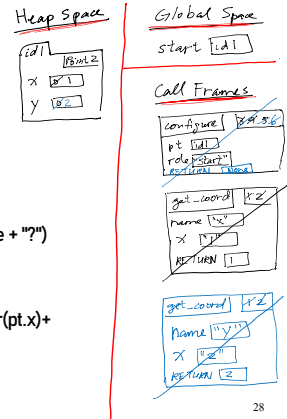 Heap Space
id1
Point2
x 0 1
y 0 2
e + "?")
r(pt.x)+
Global Space
start id1
Call Frames
configure
pt id1
role "start"
RETURN None
get_coord 1 2
name "x"
x "1"
RETURN 1
get_coord 1 2
name "y"
x "2"
RETURN 2
28